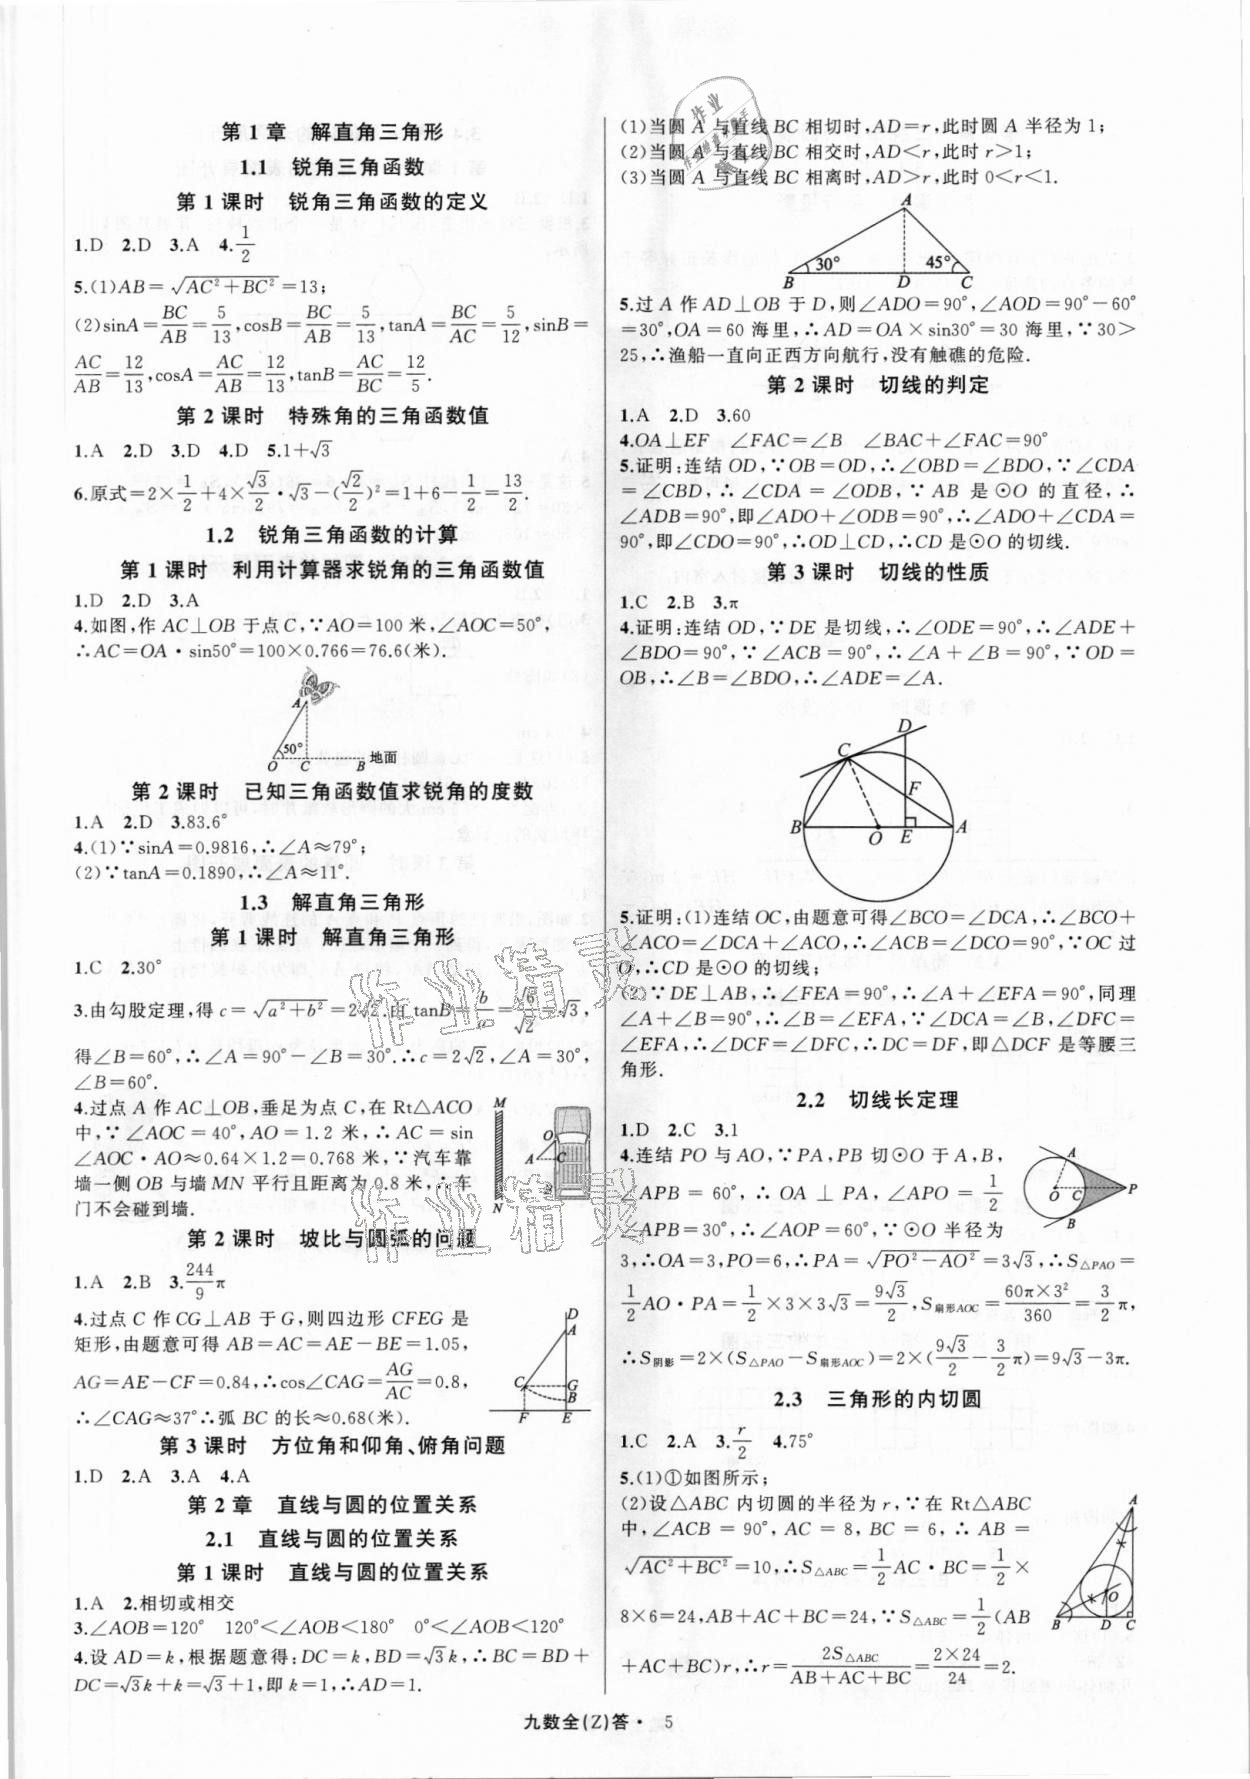 第1章 解直角三角形
1.1 锐角三角函数
第1课时 锐角三角函数的定义
1.D 2.D 3.A 4.1/2
5.(1)AB=√(AC²+BC²)=13;
(2)sinA=BC/AB=5/13,cosB=BC/AB=5/13,tanA=BC/AC=5/12,sinB=
AC/AB=12/13,cosA=AC/AB=12/13,tanB=AC/BC=12/5.
第2课时 特殊角的三角函数值
1.A 2.D 3.D 4.D 5.1+√3
6.原式=2×1/2+4×√3/2·√3-(√2/2)²=1+6-1/2=13/2.
1.2 锐角三角函数的计算
第1课时 利用计算器求锐角的三角函数值
1.D 2.D 3.A
4.如图,作AC⊥OB于点C,∵AO=100米,∠AOC=50°,
∴AC=OA·sin50°=100×0.766=76.6(米).
A
50°
O C B 地面
第2课时 已知三角函数值求锐角的度数
1.A 2.D 3.83.6°
4.(1)∵sinA=0.9816,∴∠A≈79°;
(2)∵tanA=0.1890,∴∠A≈11°.
1.3 解直角三角形
第1课时 解直角三角形
1.C 2.30°
3.由勾股定理,得c=√(a²+b²)=2√2.由tanB=b/a=√6/√2=√3,
得∠B=60°,∴∠A=90°-∠B=30°.∴c=2√2,∠A=30°,
∠B=60°.
4.过点A作AC⊥OB,垂足为点C,在Rt△ACO
中,∵∠AOC=40°,AO=1.2米,∴AC=sin
∠AOC·AO≈0.64×1.2=0.768米,∵汽车靠
墙一侧OB与墙MN平行且距离为0.8米,∴车
门不会碰到墙.
M
O
A C
B
N
第2课时 坡比与圆弧的问题
1.A 2.B 3.244/9π
4.过点C作CG⊥AB于G,则四边形CFEG是
矩形,由题意可得AB=AC=AE-BE=1.05,
AG=AE-CF=0.84,∴cos∠CAG=AG/AC=0.8,
∴∠CAG≈37°∴弧BC的长≈0.68(米).
D
A
C G
B
F E
第3课时 方位角和仰角、俯角问题
1.D 2.A 3.A 4.A
第2章 直线与圆的位置关系
2.1 直线与圆的位置关系
第1课时 直线与圆的位置关系
1.A 2.相切或相交
3.∠AOB=120° 120°<∠AOB<180° 0°<∠AOB<120°
4.设AD=k,根据题意得:DC=k,BD=√3k,∴BC=BD+
DC=√3k+k=√3+1,即k=1,∴AD=1.
(1)当圆A与直线BC相切时,AD=r,此时圆A半径为1;
(2)当圆A与直线BC相交时,AD<r,此时r>1;
(3)当圆A与直线BC相离时,AD>r,此时0<r<1.
A
30° 45°
B D C
5.过A作AD⊥OB于D,则∠ADO=90°,∠AOD=90°-60°
=30°,OA=60海里,∴AD=OA×sin30°=30海里,∵30>
25,∴渔船一直向正西方向航行,没有触礁的危险.
第2课时 切线的判定
1.A 2.D 3.60
4.OA⊥EF ∠FAC=∠B ∠BAC+∠FAC=90°
5.证明:连结OD,∵OB=OD,∴∠OBD=∠BDO,∵∠CDA
=∠CBD,∴∠CDA=∠ODB,∵AB是⊙O的直径,∴
∠ADB=90°,即∠ADO+∠ODB=90°,∴∠ADO+∠CDA=
90°,即∠CDO=90°,∴OD⊥CD,∴CD是⊙O的切线.
第3课时 切线的性质
1.C 2.B 3.π
4.证明:连结OD,∵DE是切线,∴∠ODE=90°,∴∠ADE+
∠BDO=90°,∵∠ACB=90°,∴∠A+∠B=90°,∵OD=
OB,∴∠B=∠BDO,∴∠ADE=∠A.
D
C
F
B O E A
5.证明:(1)连结OC,由题意可得∠BCO=∠DCA,∴∠BCO+
∠ACO=∠DCA+∠ACO,∴∠ACB=∠DCO=90°,∵OC过
O,∴CD是⊙O的切线;
(2)∵DE⊥AB,∴∠FEA=90°,∴∠A+∠EFA=90°,同理
∠A+∠B=90°,∴∠B=∠EFA,∵∠DCA=∠B,∠DFC=
∠EFA,∴∠DCF=∠DFC,∴DC=DF,即△DCF是等腰三
角形.
2.2 切线长定理
1.D 2.C 3.1
4.连结PO与AO,∵PA,PB切⊙O于A,B,
∠APB=60°,∴OA⊥PA,∠APO=1/2
∠APB=30°,∴∠AOP=60°,∵⊙O半径为
3,∴OA=3,PO=6,∴PA=√(PO²-AO²)=3√3,∴S△PAO=
1/2AO·PA=1/2×3×3√3=9√3/2,S扇形AOC=60π×3²/360=3/2π,
∴S阴影=2×(S△PAO-S扇形AOC)=2×(9√3/2-3/2π)=9√3-3π.
A
O C P
B
2.3 三角形的内切圆
1.C 2.A 3.r/2 4.75°
5.(1)①如图所示;
(2)设△ABC内切圆的半径为r,∵在Rt△ABC
中,∠ACB=90°,AC=8,BC=6,∴AB=
√(AC²+BC²)=10,∴S△ABC=1/2AC·BC=1/2×
8×6=24,AB+AC+BC=24,∵S△ABC=1/2(AB
+AC+BC)r,∴r=2S△ABC/(AB+AC+BC)=2×24/24=2.
A
O
B D C
九数全(Z)答· 5
作业精灵
作业精灵